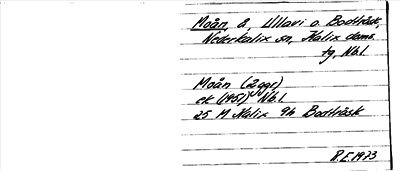 Moån, å, Ullavi o. Bodträsk,
Nederkalix sn, Kalix doms.
tg, Nbl.
Moån (2 ggr)
ek (1951) Nbl.
25 M Kalix 9h Bodträsk
R.E. 1973